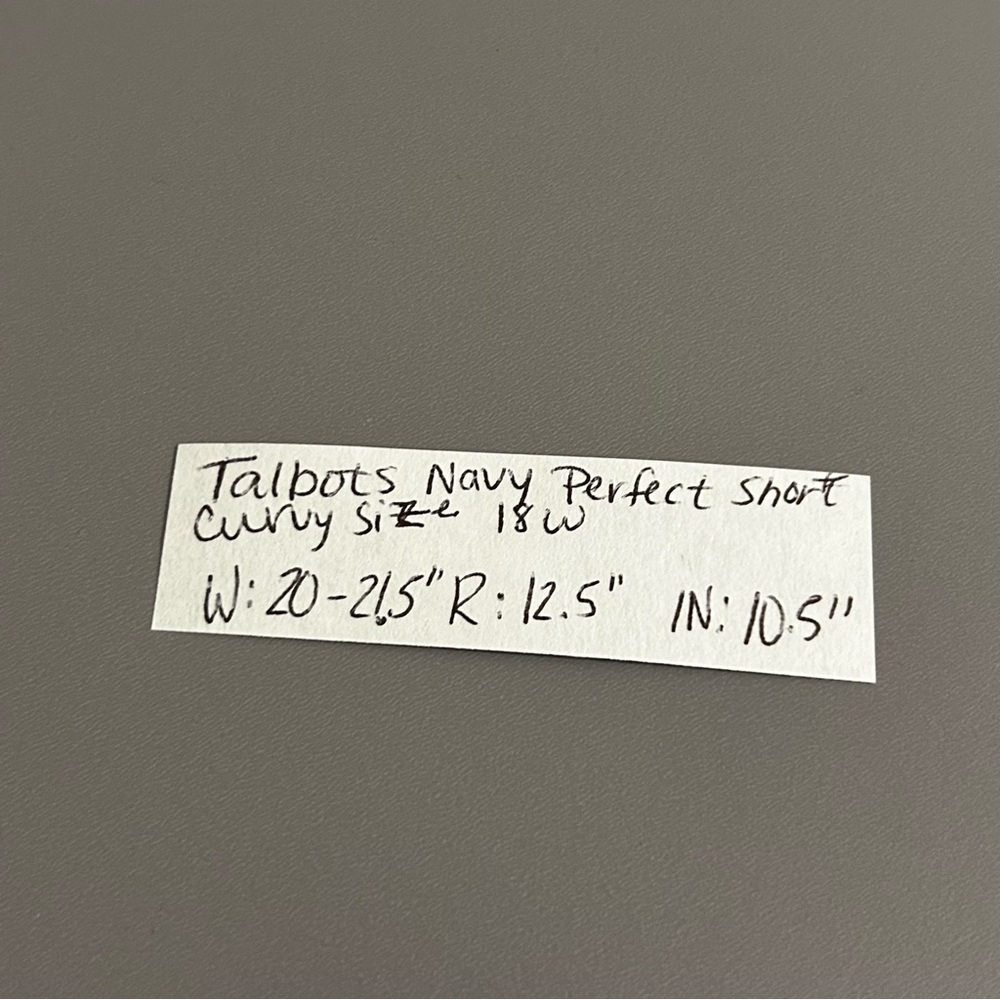 Talbots Navy Perfect Short
Curvy Size 18W
W: 20-21.5" R: 12.5" IN: 10.5"